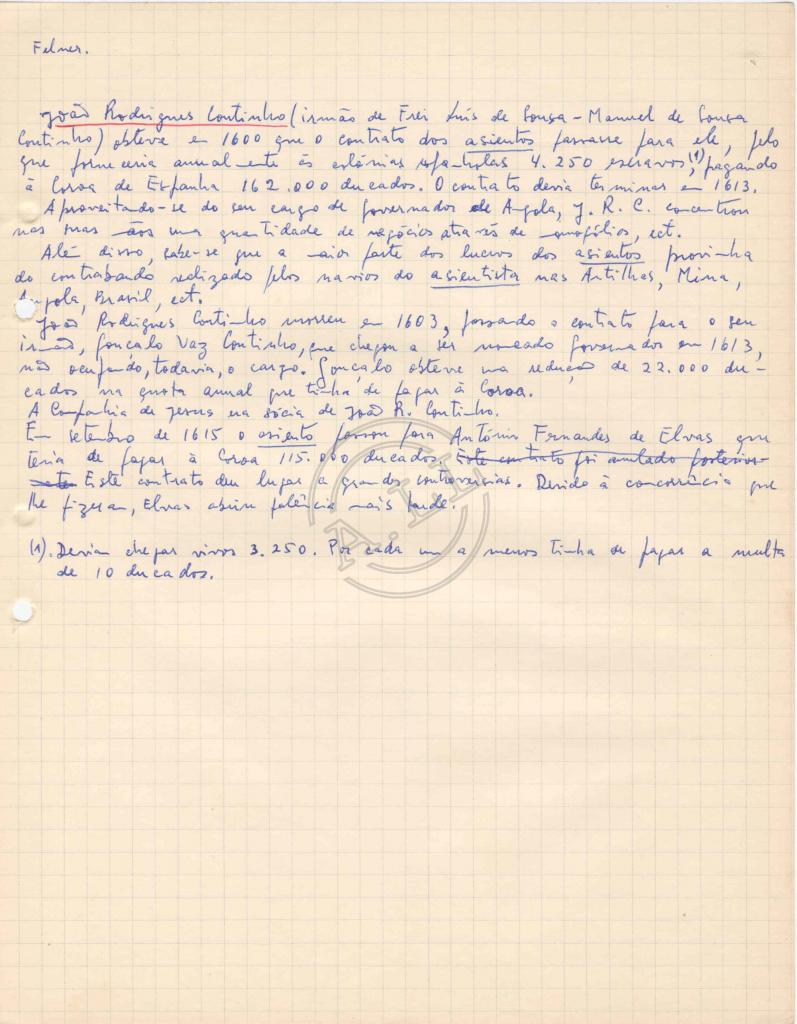 Felner.
João Rodrigues Coutinho (irmão de Frei Luís de Sousa - Manuel de Sousa
Coutinho) obteve em 1600 que o contrato dos asientos passasse para ele, pelo
que forneceria anualmente às colónias espanholas 4.250 escravos,(1) pagando
à Coroa de Espanha 162.000 ducados. O contrato devia terminar em 1613.
Aproveitando-se do seu cargo de governador de Angola, J. R. C. concentrou
nas suas mãos uma quantidade de negócios através de monopólios, ect.
Além disso, sabe-se que a maior parte dos lucros dos asientos provinha
do contrabando realizado pelos navios do asientista nas Antilhas, Mina,
Angola, Brasil, ect.
João Rodrigues Coutinho morreu em 1603, passando o contrato para o seu
irmão, Gonçalo Vaz Coutinho, que chegou a ser nomeado governador em 1613,
não ocupando, todavia, o cargo. Gonçalo obteve uma redução de 22.000 du-
cados na quota anual que tinha de pagar à Coroa.
A Companhia de Jesus era sócia de João R. Coutinho.
Em setembro de 1615 o asiento passou para António Fernandes de Elvas que
teria de pagar à Coroa 115.000 ducados. Este contrato foi anulado posterior-
mente Este contrato deu lugar a grandes controvérsias. Devido à concorrência que
lhe fizeram, Elvas abriu falência mais tarde.
(1). Deviam chegar vivos 3.250. Por cada um a menos tinha de pagar a multa
de 10 ducados.
A.LH